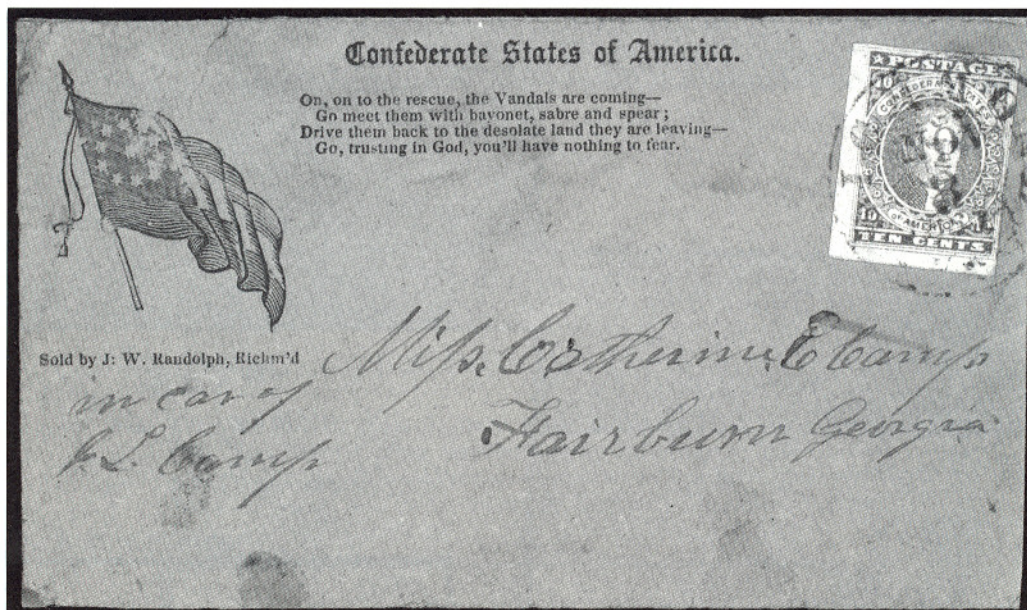 Confederate States of America.
On, on to the rescue, the Vandals are coming—
Go meet them with bayonet, sabre and spear;
Drive them back to the desolate land they are leaving—
Go, trusting in God, you'll have nothing to fear.
POSTAGE
10
CONFEDERATE STATES
OF AMERICA
10
TEN CENTS
Sold by J. W. Randolph, Richm'd
Miss. Catherine. E Camp
in car of
Fairburn Georgia
J. L. Camp